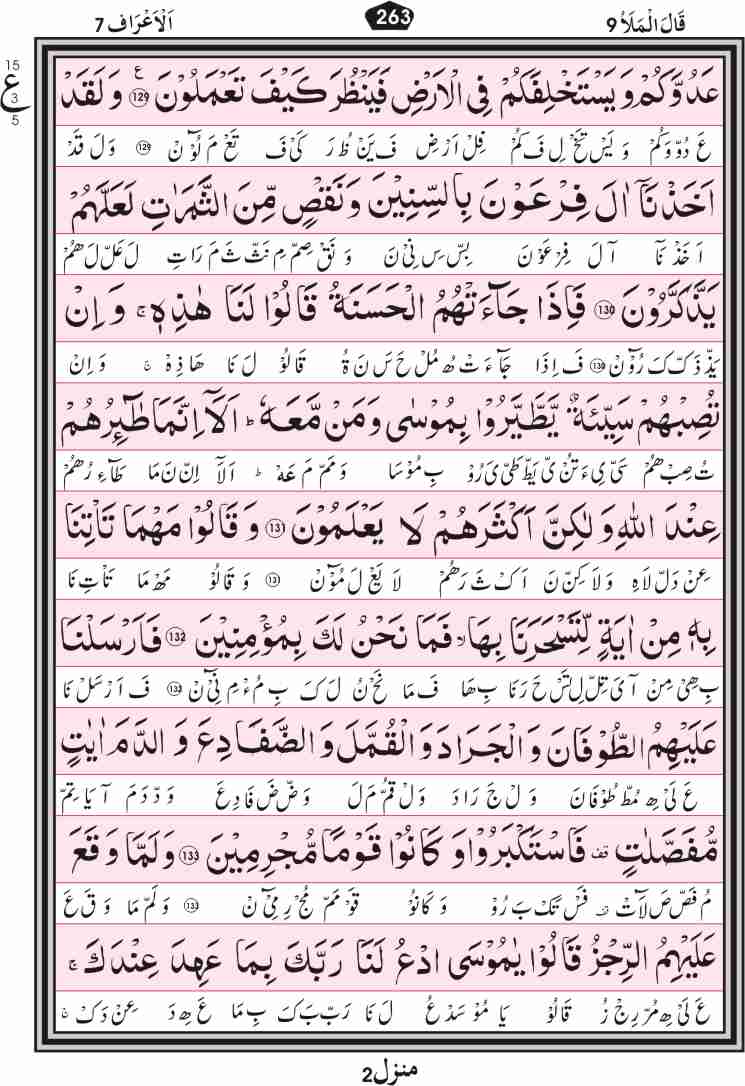 قَالَ الْمَلَاُ 9 263 اَلْاَعْرَاف 7
15
ع
3
5
عَدُوَّكُمْ وَيَسْتَخْلِفَكُمْ فِى الْاَرْضِ فَيَنْظُرَ كَيْفَ تَعْمَلُوْنَ ۝129 ع وَلَقَدْ
عَ دُوْ وَكُمْ وَ يَسْ تَخْ لِ فَ كُمْ فِلْ اَرْضِ فَ يَنْ ظُ رَ كَىْ فَ تَعْ مَ لُوْٓنْ ۝129 وَ لَ قَدْ
اَخَذْنَاۤ اٰلَ فِرْعَوْنَ بِالسِّنِيْنَ وَنَقْصٍ مِّنَ الثَّمَرٰتِ لَعَلَّهُمْ
اَ خَذْ نَآ آ لَ فِرْعَوْنَ بِسْ سِ نِىْ نَ وَ نَقْ صِمْ مِ نَثْ ثَ مَ رَاتِ لَ عَلْ لَ هُمْ
يَذَّكَّرُوْنَ ۝130 فَاِذَا جَآءَتْهُمُ الْحَسَنَةُ قَالُوْا لَنَا هٰذِهٖ ۚ وَاِنْ
يَذْ ذَكْ كَ رُوْٓنْ ۝130 فَ اِذَا جَآءَتْ هُ مُلْ حَ سَ نَ ةُ قَالُوْ لَ نَا هَاذِهْ ج وَ اِنْ
تُصِبْهُمْ سَيِّئَةٌ يَّطَّيَّرُوْا بِمُوْسٰى وَمَنْ مَّعَهٗ ؕ اَلَاۤ اِنَّمَا طٰٓئِرُهُمْ
تُ صِبْ هُمْ سَىْ ىِ ءَ تُنْ ىْ يَطْ طَىْ ىَ رُوْ بِ مُوْسَا وَ مَمْ مَ عَهْ ط اَلَآ اِنْ نَ مَا طَآءِ رُهُمْ
عِنْدَ اللّٰهِ وَلٰكِنَّ اَكْثَرَهُمْ لَا يَعْلَمُوْنَ ۝131 وَقَالُوْا مَهْمَا تَاْتِنَا
عِنْ دَلْ لَاهِ وَ لَا كِنْ نَ اَكْ ثَ رَهُمْ لَا يَعْ لَ مُوْٓنْ ۝131 وَ قَالُوْ مَهْ مَا تَأْتِ نَا
بِهٖ مِنْ اٰيَةٍ لِّتَسْحَرَنَا بِهَا ۙ فَمَا نَحْنُ لَكَ بِمُؤْمِنِيْنَ ۝132 فَاَرْسَلْنَا
بِ هِىْ مِنْ آ ىَ تِلْ لِ تَسْ حَ رَنَا بِهَا فَ مَا نَحْ نُ لَ كَ بِ مُءْ مِ نِىْٓ نْ ۝132 فَ اَرْسَلْ نَا
عَلَيْهِمُ الطُّوْفَانَ وَالْجَرَادَ وَالْقُمَّلَ وَالضَّفَادِعَ وَالدَّمَ اٰيٰتٍ
عَ لَىْ هِ مُطْ طُوْفَانَ وَلْ جَ رَادَ وَلْ قُمْ مَ لَ وَضْ ضَ فَادِعَ وَدْ دَمَ آ يَا تِمْ
مُّفَصَّلٰتٍ قف فَاسْتَكْبَرُوْا وَكَانُوْا قَوْمًا مُّجْرِمِيْنَ ۝133 وَلَمَّا وَقَعَ
مُ فَصْ صَ لَاتْ قف فَسْ تَكْ بَ رُوْ وَ كَانُوْ قَوْ مَمْ مُجْ رِ مِىْٓ نْ ۝133 وَ لَمْ مَا وَ قَ عَ
عَلَيْهِمُ الرِّجْزُ قَالُوْا يٰمُوْسَى ادْعُ لَنَا رَبَّكَ بِمَا عَهِدَ عِنْدَكَ ۚ
عَ لَىْ هِ مُرْ رِجْ زُ قَالُوْ يَا مُوْ سَدْ عُ لَ نَا رَبْ بَ كَ بِ مَا عَ هِ دَ عِنْ دَكْ ج
منزل2